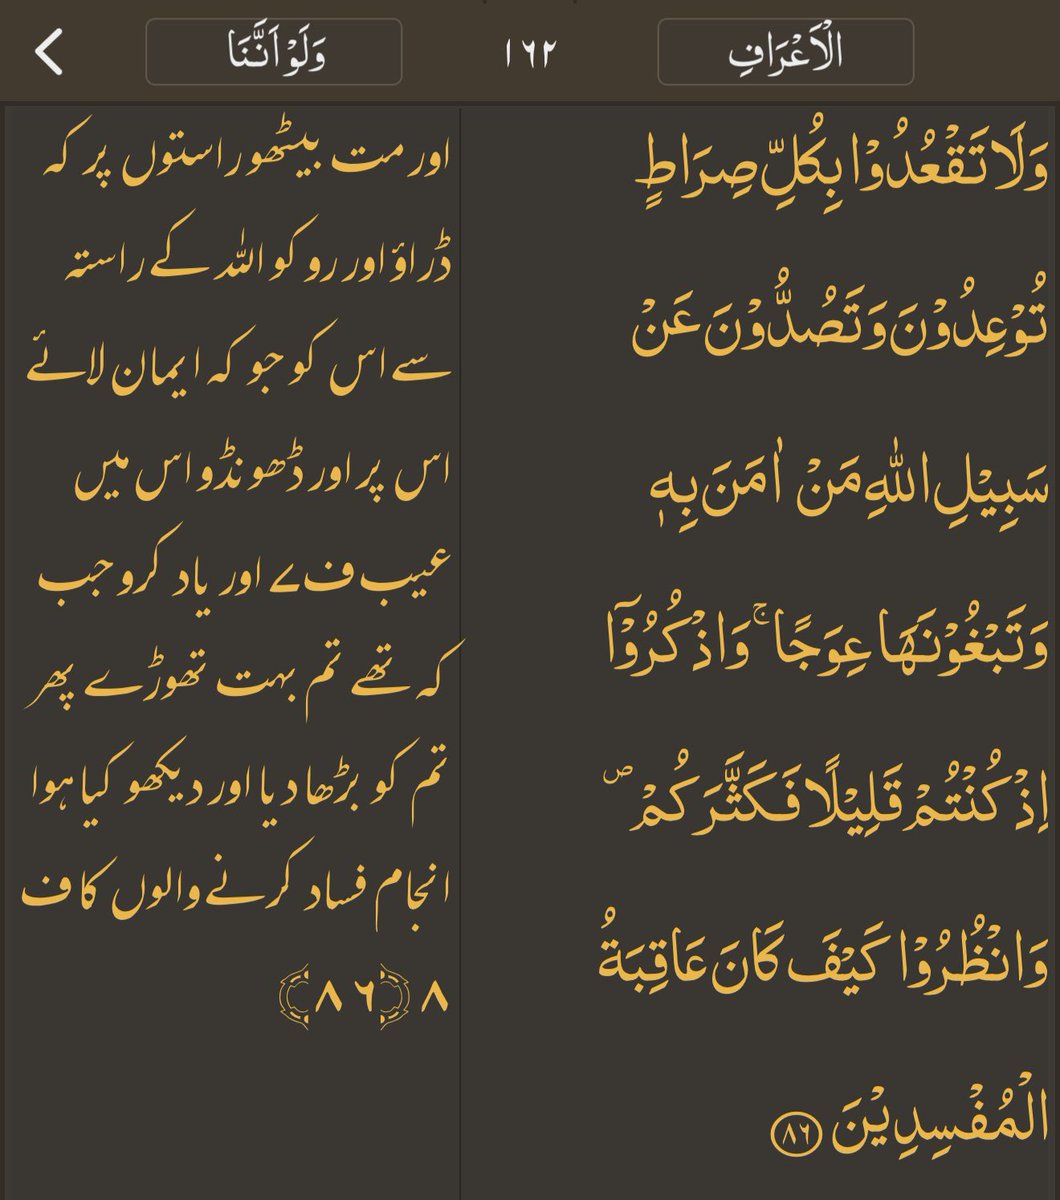 الْاَعْرَافِ
١٦٢
وَلَوْ اَنَّنَا
وَلَا تَقْعُدُوْا بِكُلِّ صِرَاطٍ
تُوْعِدُوْنَ وَتَصُدُّوْنَ عَنْ
سَبِيْلِ اللّٰهِ مَنْ اٰمَنَ بِهٖ
وَتَبْغُوْنَهَا عِوَجًا ۚ وَاذْكُرُوْۤا
اِذْ كُنْتُمْ قَلِيْلًا فَكَثَّرَكُمْ ۪
وَانْظُرُوْا كَيْفَ كَانَ عَاقِبَةُ
الْمُفْسِدِيْنَ ٨٦
اور مت بیٹھو راستوں پر کہ
ڈراؤ اور روکو اللہ کے راستہ
سے اس کو جو کہ ایمان لائے
اس پر اور ڈھونڈو اس میں
عیب ف۷ اور یاد کرو جب
کہ تھے تم بہت تھوڑے پھر
تم کو بڑھا دیا اور دیکھو کیا ہوا
انجام فساد کرنے والوں کا ف
۸ ﴿۸۶﴾